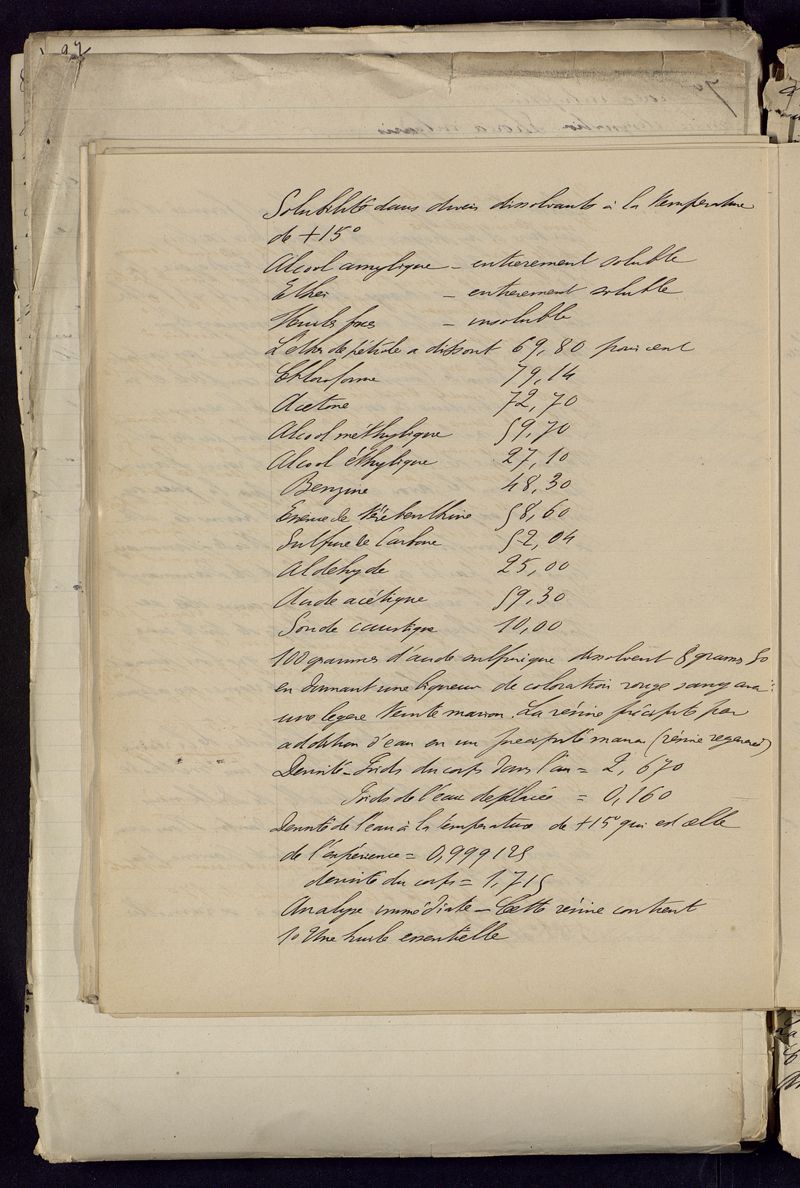 97
Solubilité dans divers dissolvants à la température
de +15°
Alcool amylique – entierement soluble
Ether – entierement soluble
Huiles fixes – insoluble
L'ether de pétrole a dissout 69,80 pour cent
Chloroforme 79,14
Acetone 72,70
Alcool méthylique 59,70
Alcool éthylique 27,10
Benzine 48,30
Essence de térébenthine 58,60
Sulfure de Carbone 52,04
Aldehyde 25,00
Acide acétique 59,30
Soude caustique 10,00
100 grammes d'acide sulfurique dissolvent 8 grams 50
en donnant une liqueur de coloration rouge sang avec
une legere teinte marron. La résine précipite par
addition d'eau en un precipité marron (résine regeneree)
Densité – Poids du corps dans l'air = 2,670
Poids de l'eau deplacée = 0,160
Densité de l'eau à la température de +15° qui est celle
de l'expérience = 0,999125
densité du corps = 1,715
Analyse immédiate – Cette résine contient
1° Une huile essentielle